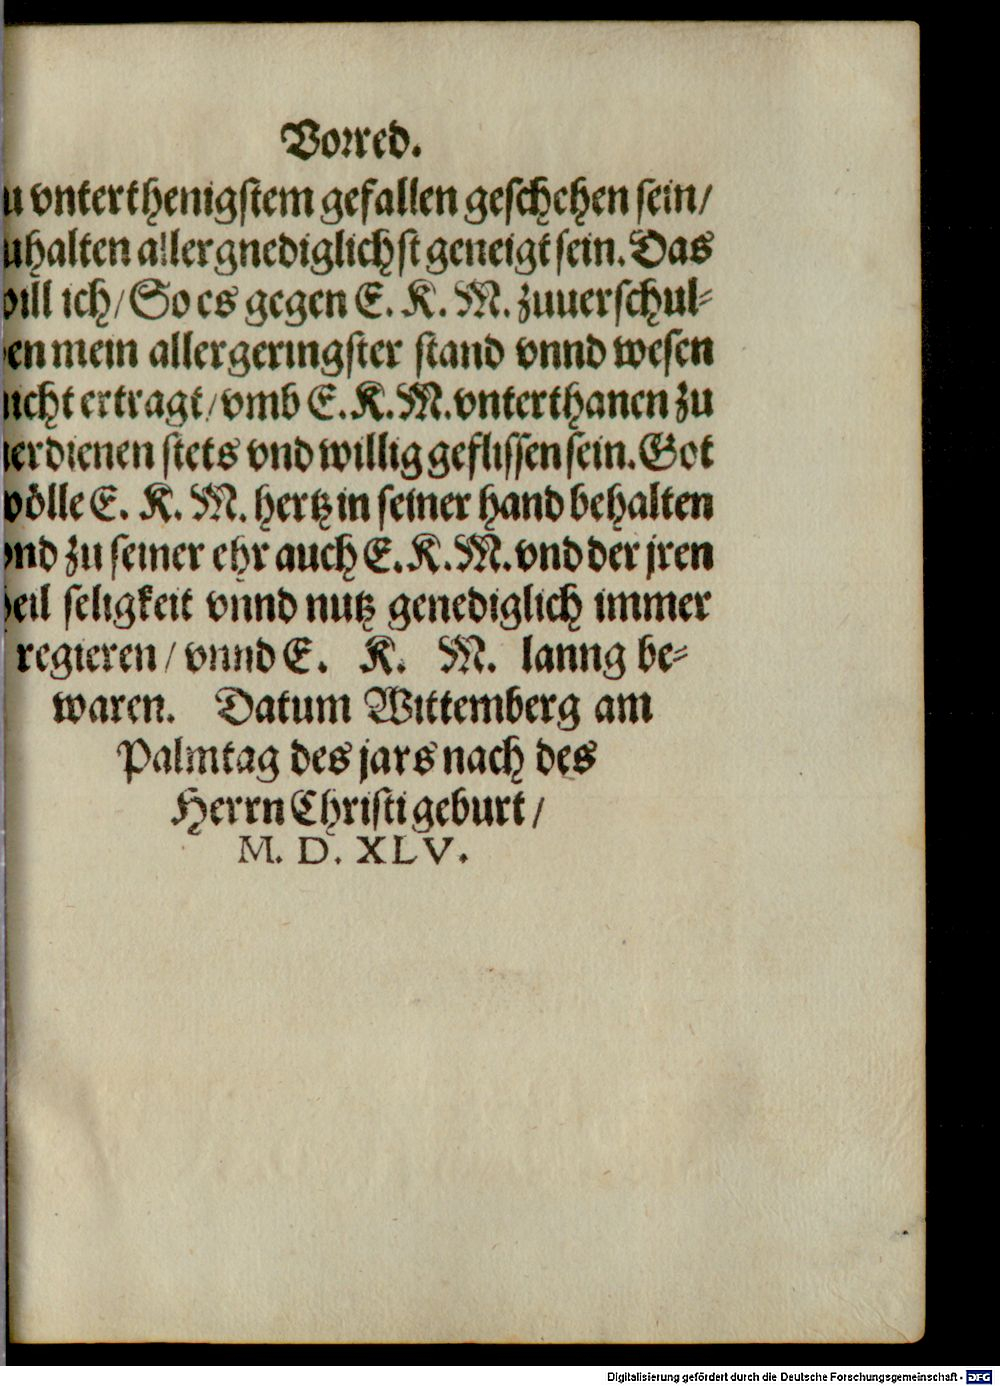 Vorred.
u vnterthenigstem gefallen geschehen sein/
uhalten allergnediglichst geneigt sein. Das
will ich/ So es gegen E. K. M. zuuerschul⸗
en mein allergeringster stand vnnd wesen
nicht ertragt/ vmb E. K. M. vnterthanen zu
erdienen stets vnd willig geflissen sein. Got
wölle E. K. M. hertz in seiner hand behalten
vnd zu seiner ehr auch E. K. M. vnd der jren
heil seligkeit vnnd nutz genediglich immer
regieren/ vnnd E. K. M. lanng be⸗
waren. Datum Wittemberg am
Palmtag des jars nach des
Herrn Christi geburt/
M. D. XLV.
Digitalisierung gefördert durch die Deutsche Forschungsgemeinschaft - DFG